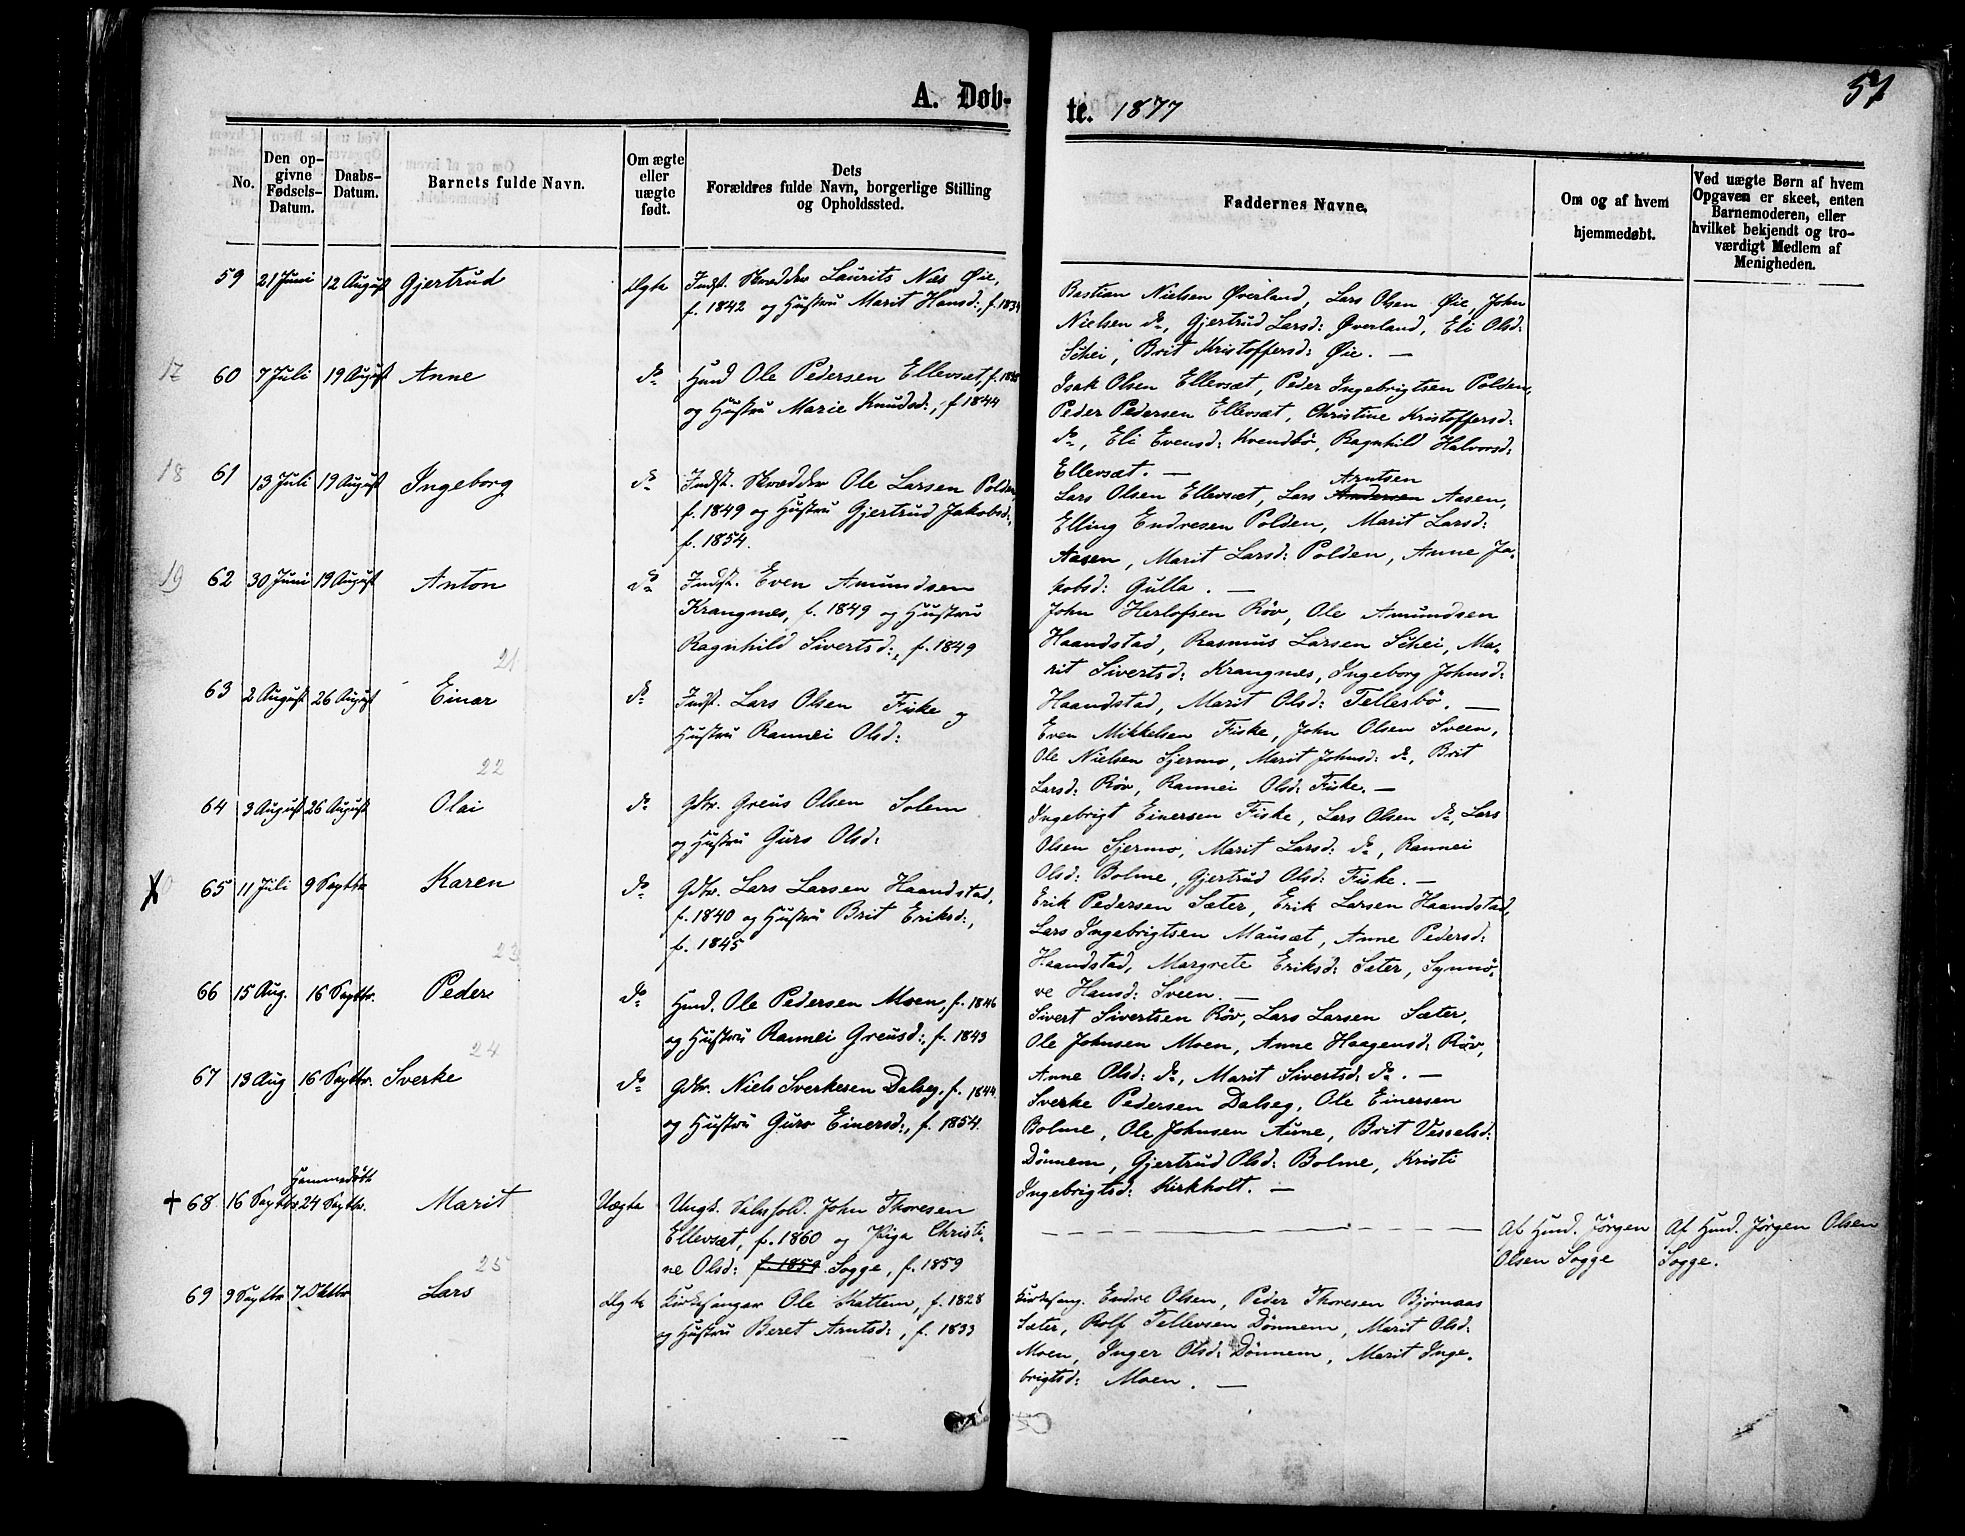 57
A. Døb-
te. 1877
No.
Den op-
givne
Fødsels-
Datum.
Daabs-
Datum.
Barnets fulde Navn.
Om ægte
eller
uægte
født.
Dets
Forældres fulde Navn, borgerlige Stilling
og Opholdssted.
Faddernes Navne.
Om og af hvem
hjemmedøbt.
Ved uægte Børn af hvem
Opgaven er skeet, enten
Barnemoderen, eller
hvilket bekjendt og tro-
værdigt Medlem af
Menigheden.
59 21 Juni 12 August Gjertrud Ægte Indst. Skrædder Laurits Nils Øie,
f. 1842 og Hustru Marit Hansd:, f. 1834
Bastian Nielsen Øverland, Lars Olsen Øie, John
Nielsen do, Gjertrud Larsd: Øverland, Eli Olsd:
Schei, Brit Kristoffersd: Øie. —
17 60 7 Juli 19 August Anne do Huusm Ole Pedersen Ellevsæt,
og Hustru Marie Knudsd:, f 1844
Isak Olsen Ellevsæt, Peder Ingebrigtsen Polden,
Peder Pedersen Ellevsæt, Christine Kristoffersd:
do, Eli Evensd: Kvendbø, Ragnhild Halvorsd:
Ellevsæt. —
18 61 13 Juli 19 August Ingeborg do Indst. Skrædder Ole Larsen Polden,
f. 1849 og Hustru Gjertrud Jakobsd:,
f. 1854.
Arntsen
Lars Olsen Ellevsæt, Lars Andersen Aasen,
Elling Endresen Polden, Marit Larsd:
Aasen, Marit Larsd: Polden, Anne Ja-
kobsd: Gulla. —
19 62 30 Juni 19 August Anton do Indst. Even Amundsen
Krangnes, f. 1849 og Hustru
Ragnhild Sivertsd:, f. 1849
John Herlofsen Röv, Ole Amundsen
Haandstad, Rasmus Larsen Schei, Ma-
rit Sivertsd: Krangnes, Ingeborg Johnsd:
Haandstad, Marit Olsd: Tellesbö. —
21
63 2 August 26 August Einar do Indst. Lars Olsen Fiske og
Hustru Rannei Olsd:
Even Mikkelsen Fiske, John Olsen Sveen,
Ole Nielsen Sjermo, Marit Johnsd: do, Brit
Larsd: Röv, Rannei Olsd: Fiske. —
22
64 3 August 26 August Olai do Gdbr. Greus Olsen Solem
og Hustru Guro Olsd:
Ingebrigt Einersen Fiske, Lars Olsen do, Lars
Olsen Sjermo, Marit Larsd: do, Rannei
Olsd: Bolme, Gjertrud Olsd: Fiske. —
65 11 Juli 9 Septbr Karen do Gdbr. Lars Larsen Haandstad,
f. 1840 og Hustru Brit Eriksd:,
f. 1845
Erik Pedersen Sæter, Erik Larsen Haandstad,
Lars Ingebrigtsen Mausæt, Anne Pedersd:
Haandstad, Margrete Eriksd: Sæter, Synnö-
ve Hansd: Sveen. —
23
66 15 Aug. 16 Septbr. Peder do Huusm. Ole Pedersen Moen, f. 1846
og Hustru Rannei Greusd:, f. 1843
Sivert Sivertsen Röv, Lars Larsen Sæter,
Ole Johnsen Moen, Anne Haagensd: Röv,
Anne Olsd: do, Marit Sivertsd: do. —
24
67 13 Aug 16 Septbr. Sverke do Gdbr. Niels Sverkesen Dalseg, f. 1844
og Hustru Guro Einersd:, f. 1854.
Sverke Pedersen Dalseg, Ole Einersen
Bolme, Ole Johnsen Aune, Brit Vesselsd:
Dönnem, Gjertrud Olsd: Bolme, Kristi
Ingebrigtsd: Kirkholt. —
Hjemmedöbt
+ 68 16 Septbr. 24 Septbr. Marit Uægte Ungk. John Thoresen
Ellevsæt, f. 1860 og Pige Christi-
ne Olsd: f. 1859 Sogge, f. 1859
Af Huusm. Jörgen
Olsen Sogge
Af Huusm. Jörgen Olsen
Sogge.
25
69 9 Septbr 7 Oktbr Lars Ægte Kirkesanger Ole Kattem, f. 1828
og Hustru Beret Arntsd:, f. 1833
Kirkesang. Endre Olsen, Peder Thoresen Bjørnaas
Sæter, Rolf Tellevsen Dönnem, Marit Olsd:
Moen, Inger Olsd: Dönnem, Marit Inge-
brigtsd: Moen. —